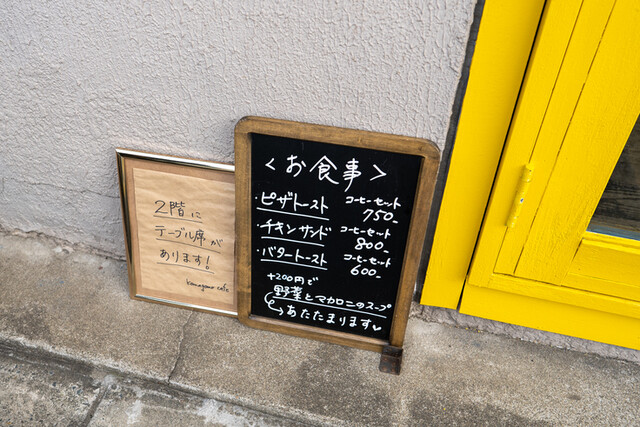 2階に
テーブル席が
あります!
kamogamo cafe
<お食事>
・ピザトースト コーヒーセット
750-
・チキンサンド コーヒーセット
800-
・バタートースト コーヒーセット
600-
+200円で
野菜とマカロニのスープ
→あたたまります♡